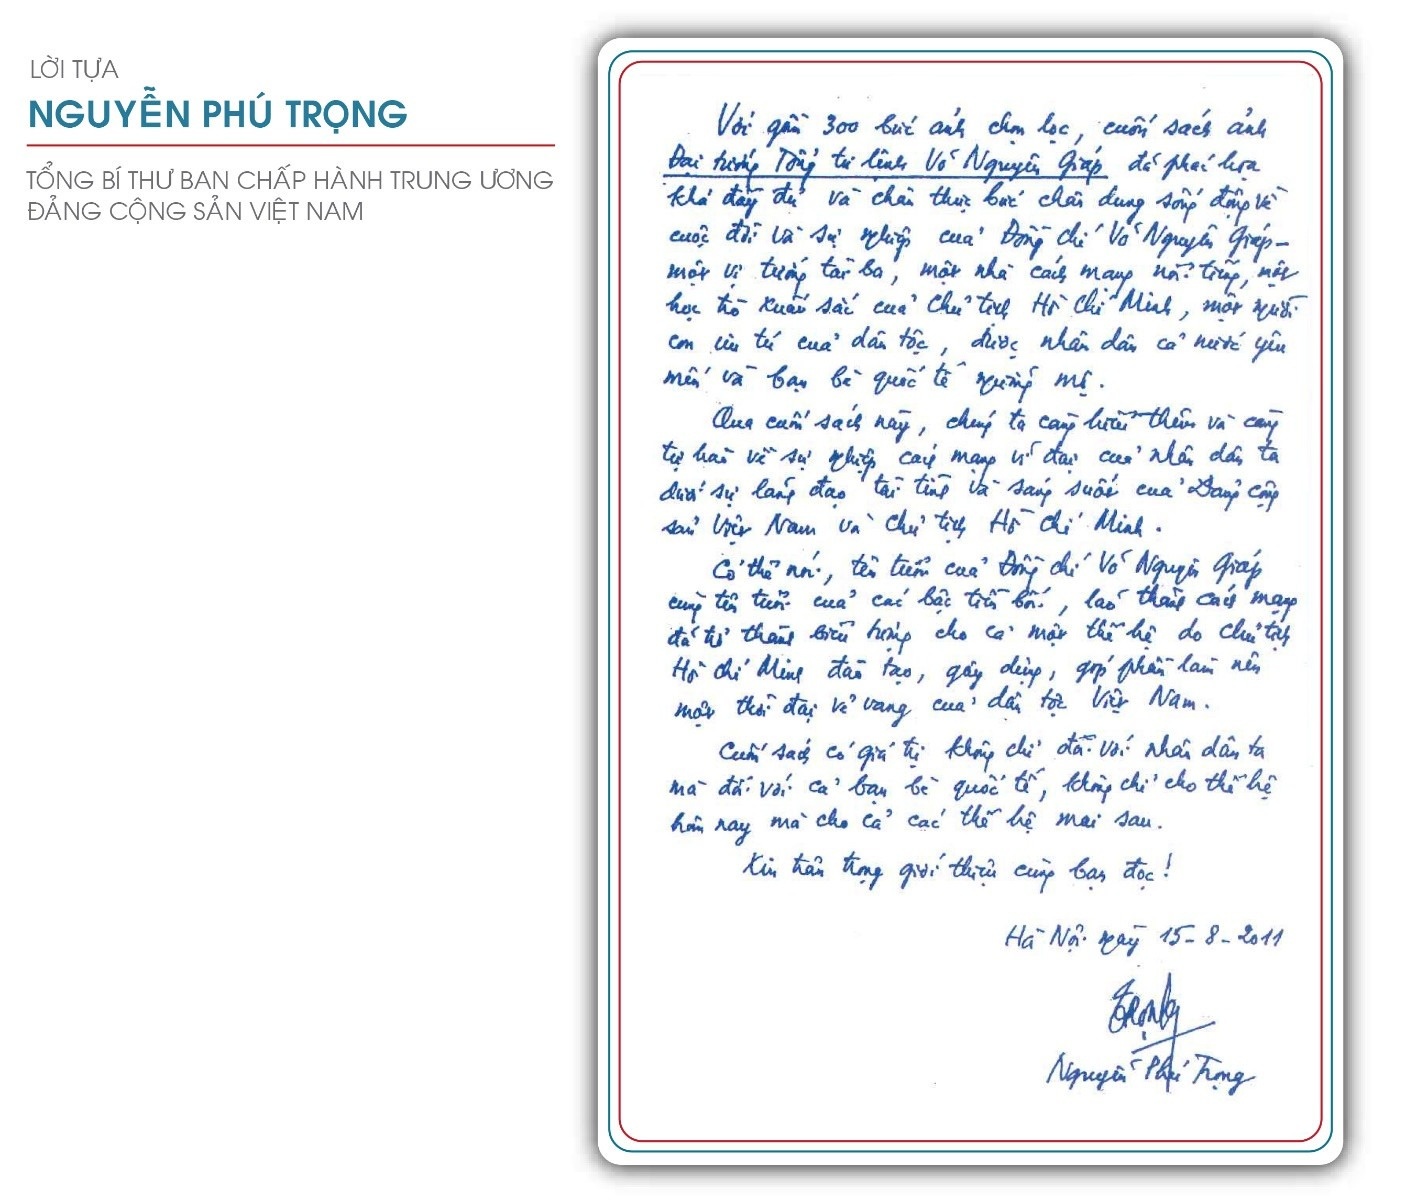 LỜI TỰA
NGUYỄN PHÚ TRỌNG
TỔNG BÍ THƯ BAN CHẤP HÀNH TRUNG ƯƠNG
ĐẢNG CỘNG SẢN VIỆT NAM
Với gần 300 bức ảnh chọn lọc, cuốn sách ảnh
Đại tướng Tổng tư lệnh Võ Nguyên Giáp đã phác họa
khá đầy đủ và chân thực bức chân dung sống động về
cuộc đời và sự nghiệp của Đồng chí Võ Nguyên Giáp -
một vị tướng tài ba, một nhà cách mạng nổi tiếng, một
học trò xuất sắc của Chủ tịch Hồ Chí Minh, một người
con ưu tú của dân tộc, được nhân dân cả nước yêu
mến và bạn bè quốc tế ngưỡng mộ.
Qua cuốn sách này, chúng ta càng hiểu thêm và càng
tự hào về sự nghiệp cách mạng vĩ đại của nhân dân ta
dưới sự lãnh đạo tài tình và sáng suốt của Đảng Cộng
sản Việt Nam và Chủ tịch Hồ Chí Minh.
Có thể nói, tên tuổi của Đồng chí Võ Nguyên Giáp
cùng tên tuổi của các bậc tiền bối, lão thành cách mạng
đã trở thành biểu tượng cho cả một thế hệ do Chủ tịch
Hồ Chí Minh đào tạo, gây dựng, góp phần làm nên
một thời đại vẻ vang của dân tộc Việt Nam.
Cuốn sách có giá trị không chỉ đối với nhân dân ta
mà đối với cả bạn bè quốc tế, không chỉ cho thế hệ
hôm nay mà cho cả các thế hệ mai sau.
Xin trân trọng giới thiệu cùng bạn đọc!
Hà Nội ngày 15-8-2011
Trọng
Nguyễn Phú Trọng